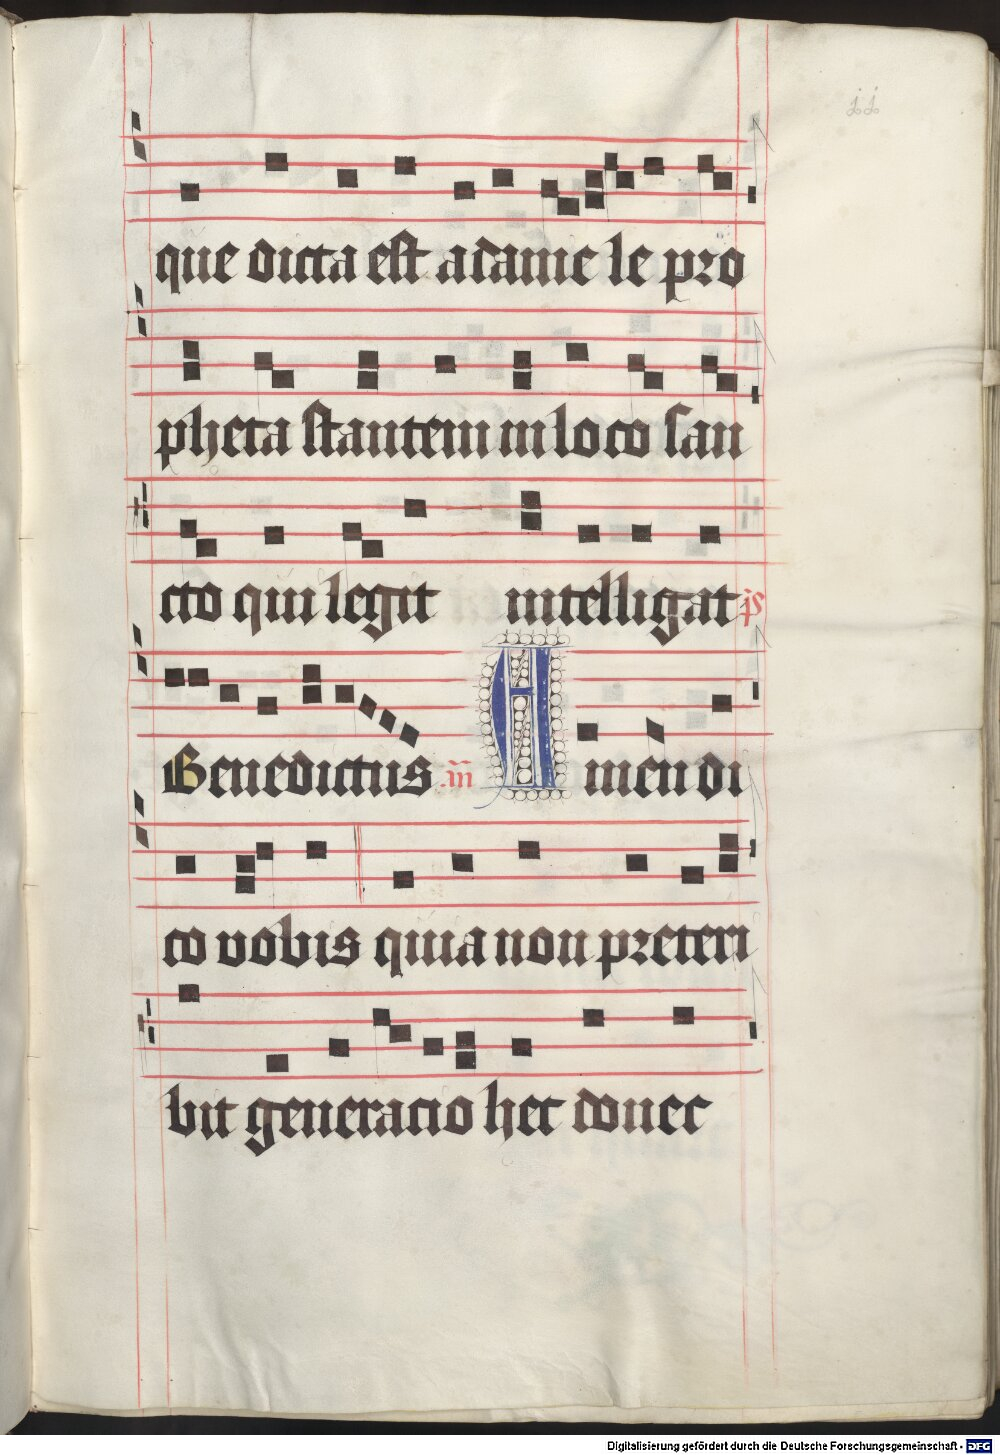 11
que dicta est a daniele pro
pheta stantem in loco san
cto qui legit intelligat ps
Benedictus an Amen di
co vobis quia non preteri
bit generacio hec donec
Digitalisierung gefördert durch die Deutsche Forschungsgemeinschaft - DFG